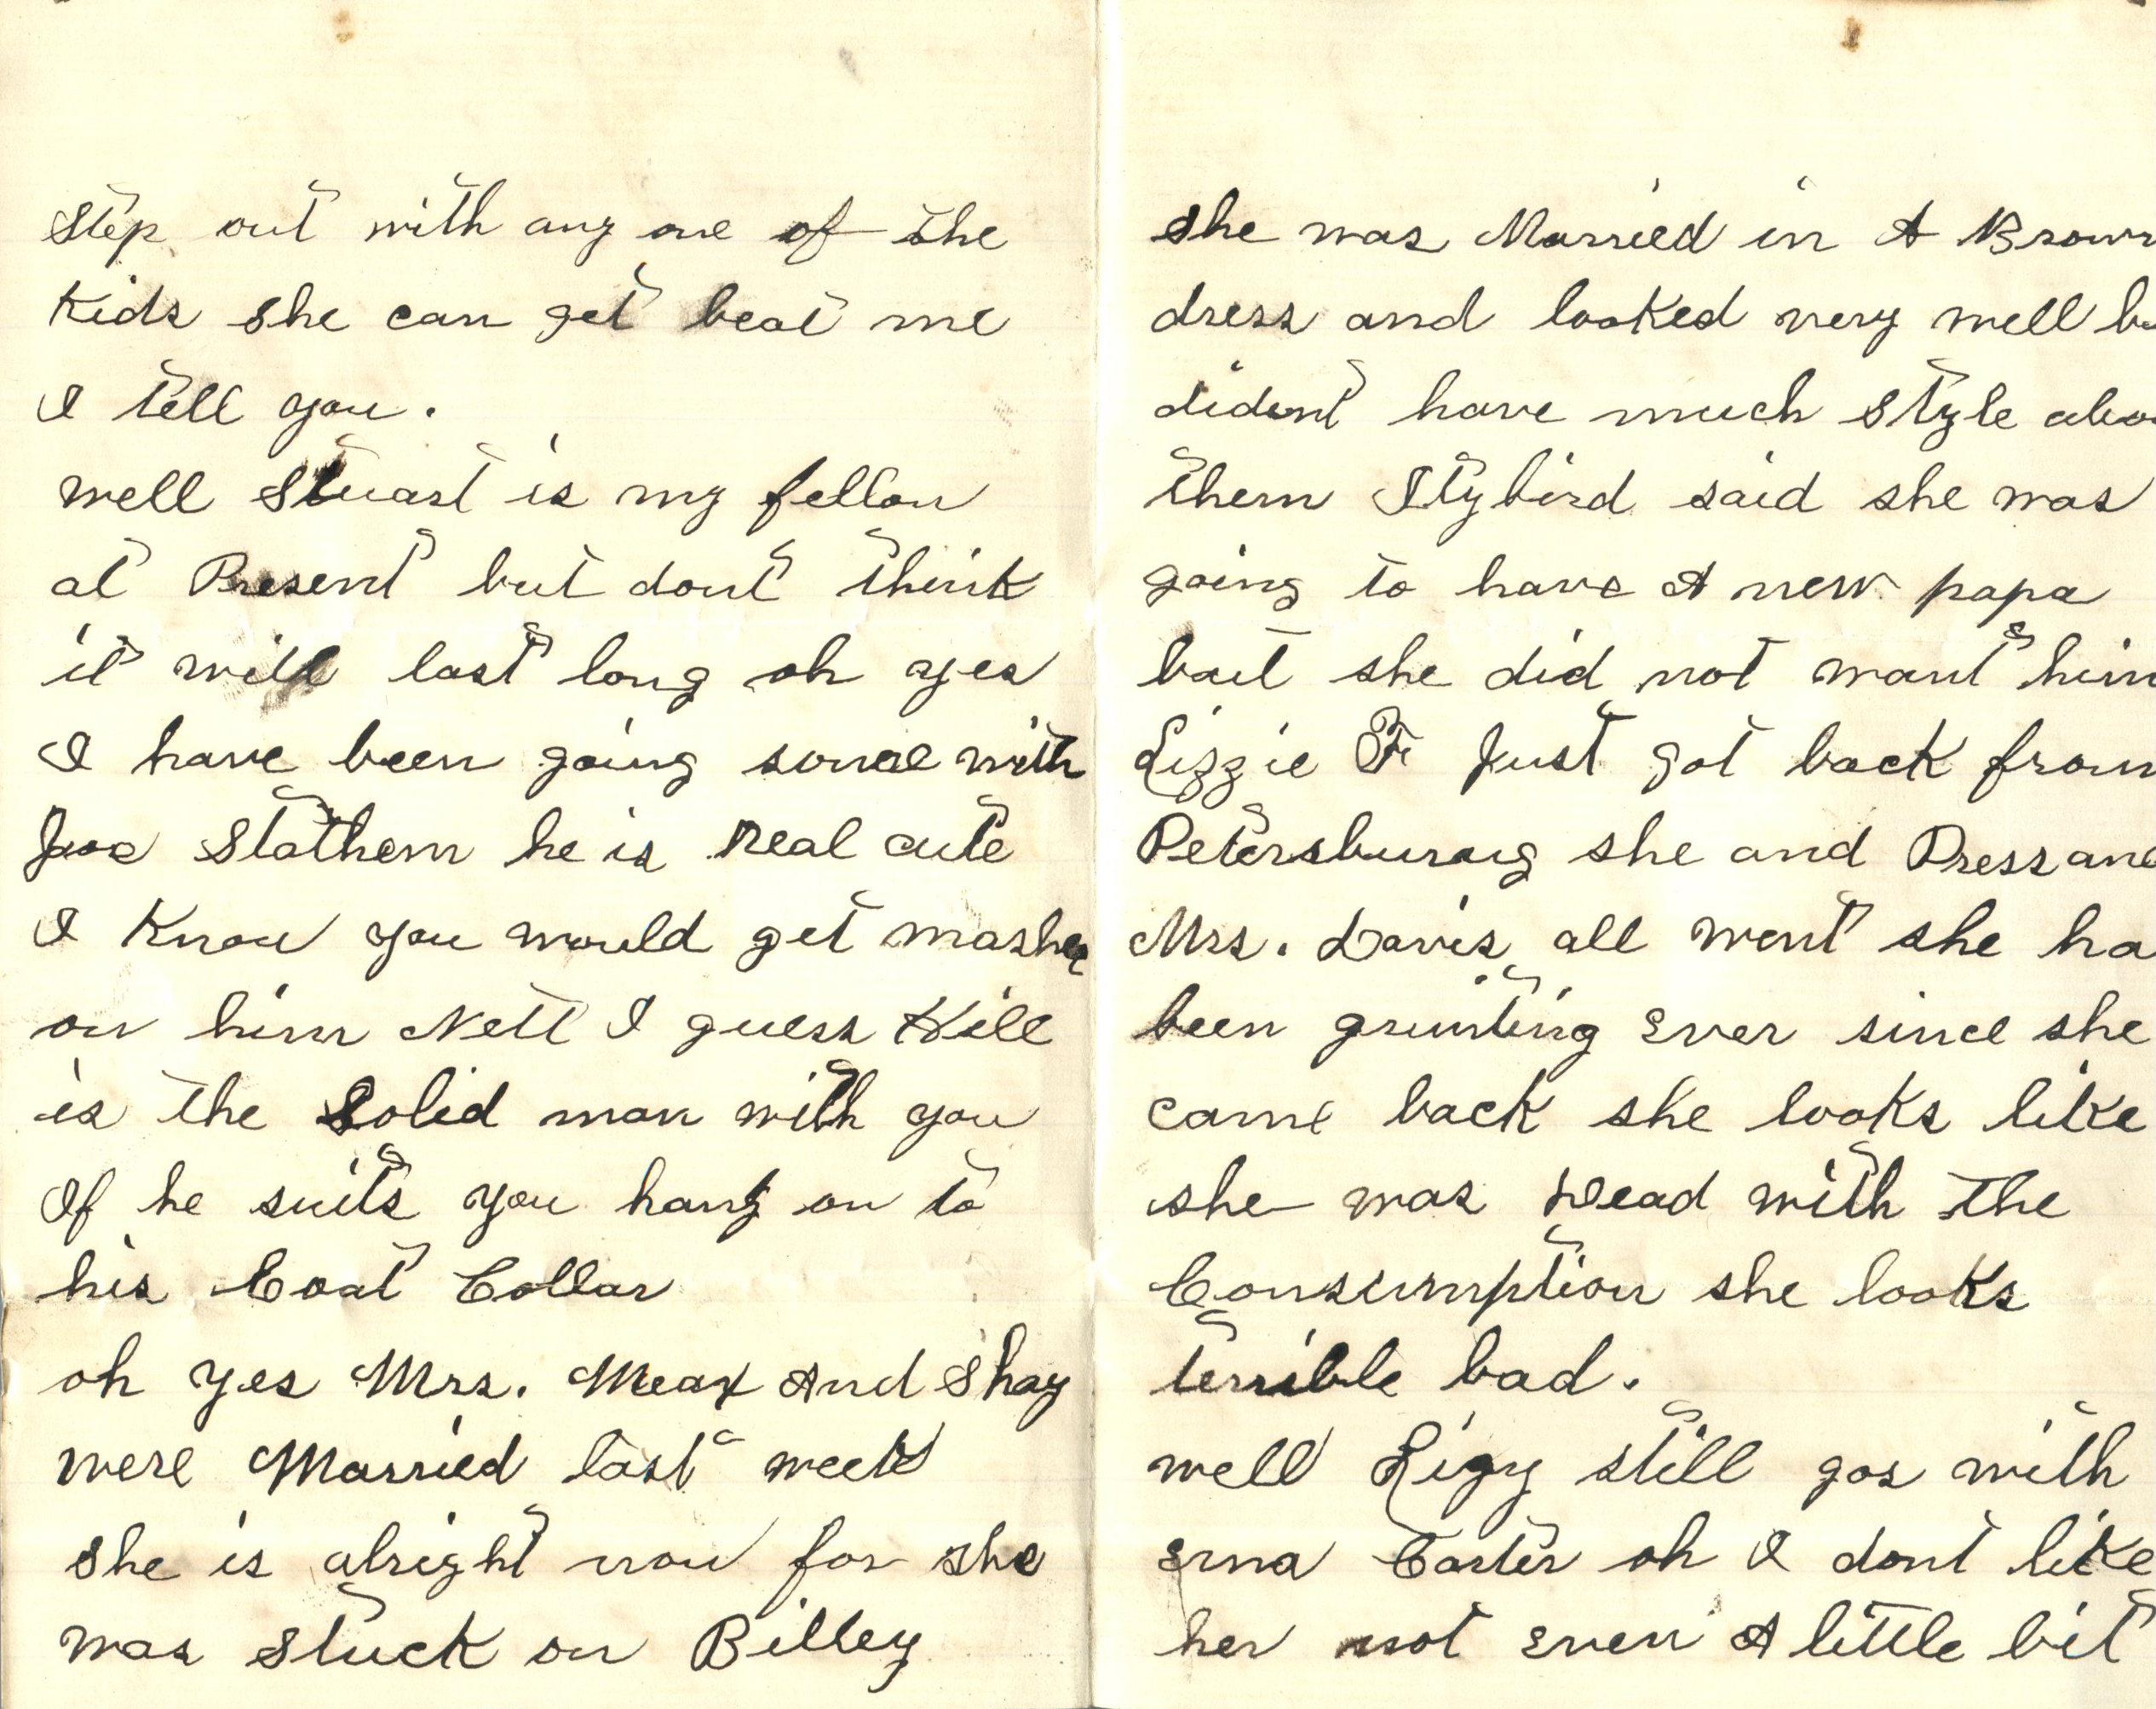 Step out with any one of the
Kids she can get beat me
I tell you.
well Stuart is my fellow
at Present but dont think
it will last long oh yes
I have been going some with
Joe Stathem he is real cute
I Know you would get mashed
on him Nell I guess Kill
is the Solid man with you
If he suits you hang on to
his Coat Collar
oh yes Mrs. Meax And Shay
were Married last week
she is alright now for she
was Stuck on Billey
she was Married in A Brown
dress and looked very well b
dident have much Style abo
them Stybird said she was
going to have A new papa
but she did not want him
Lizzie F Just got back from
Petersburg she and Press and
Mrs. Davis all went she ha
been grunting ever since she
came back she looks like
she was Dead with the
Consumption she looks
terrible bad.
well Ligy still gos with
Erna Carter oh I dont like
her not even A little bit